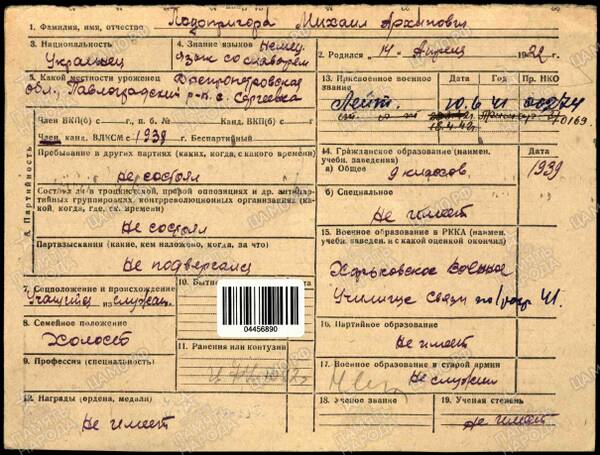 1. Фамилия, имя, отчество Подопригора Михаил Архипович
3. Национальность Украинец
4. Знание языков Немец. язык со словарём
2. Родился "14" Апреля 1922 г.
5. Какой местности уроженец Днепропетровская обл., Павлоградский р-н, с. Сергеевка
13. Присвоенное военное звание
Дата
Год
Пр. НКО
Лейт. 10.6 41
6. Партийность
Член ВКП(б) с г., п. б. № Канд. ВКП(б) с г.
Член, канд. ВЛКСМ с 1938 г. Беспартийный
Пребывание в других партиях (каких, когда, с какого времени)
Не состоял
Состоял ли в троцкистской, правой оппозиции и др. антипартийных группировках, контрреволюционных организациях (какой, когда, где, с к. времени)
Не состоял
Партвзыскания (какие, кем наложено, когда, за что)
Не подвергался
14. Гражданское образование (наимен. учебн. заведения)
а) Общее 9 классов. 1939
б) Специальное
Не имеет
15. Военное образование в РККА (наимен. учебн. заведен. и с какой оценкой окончил)
Харьковское военное
Училище связи 41.
7. Соцположение и происхождение
Учащийся из служащ.
8. Семейное положение
Холост
9. Профессия (специальность)
10.
04456890
11. Ранения или контузии
16. Партийное образование
Не имеет
17. Военное образование в старой армии
Не служил
12. Награды (ордена, медали)
Не имеет
18. Ученое звание
19. Ученая степень
Не имеет